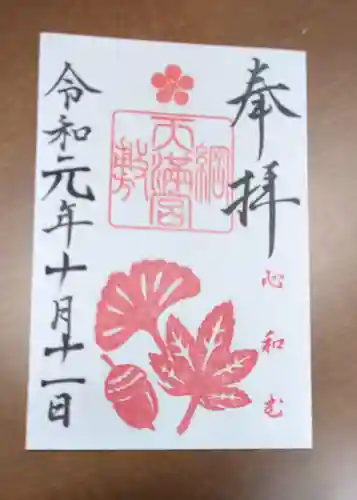 奉拝
心和む
綱敷天満宮
令和元年十月十一日